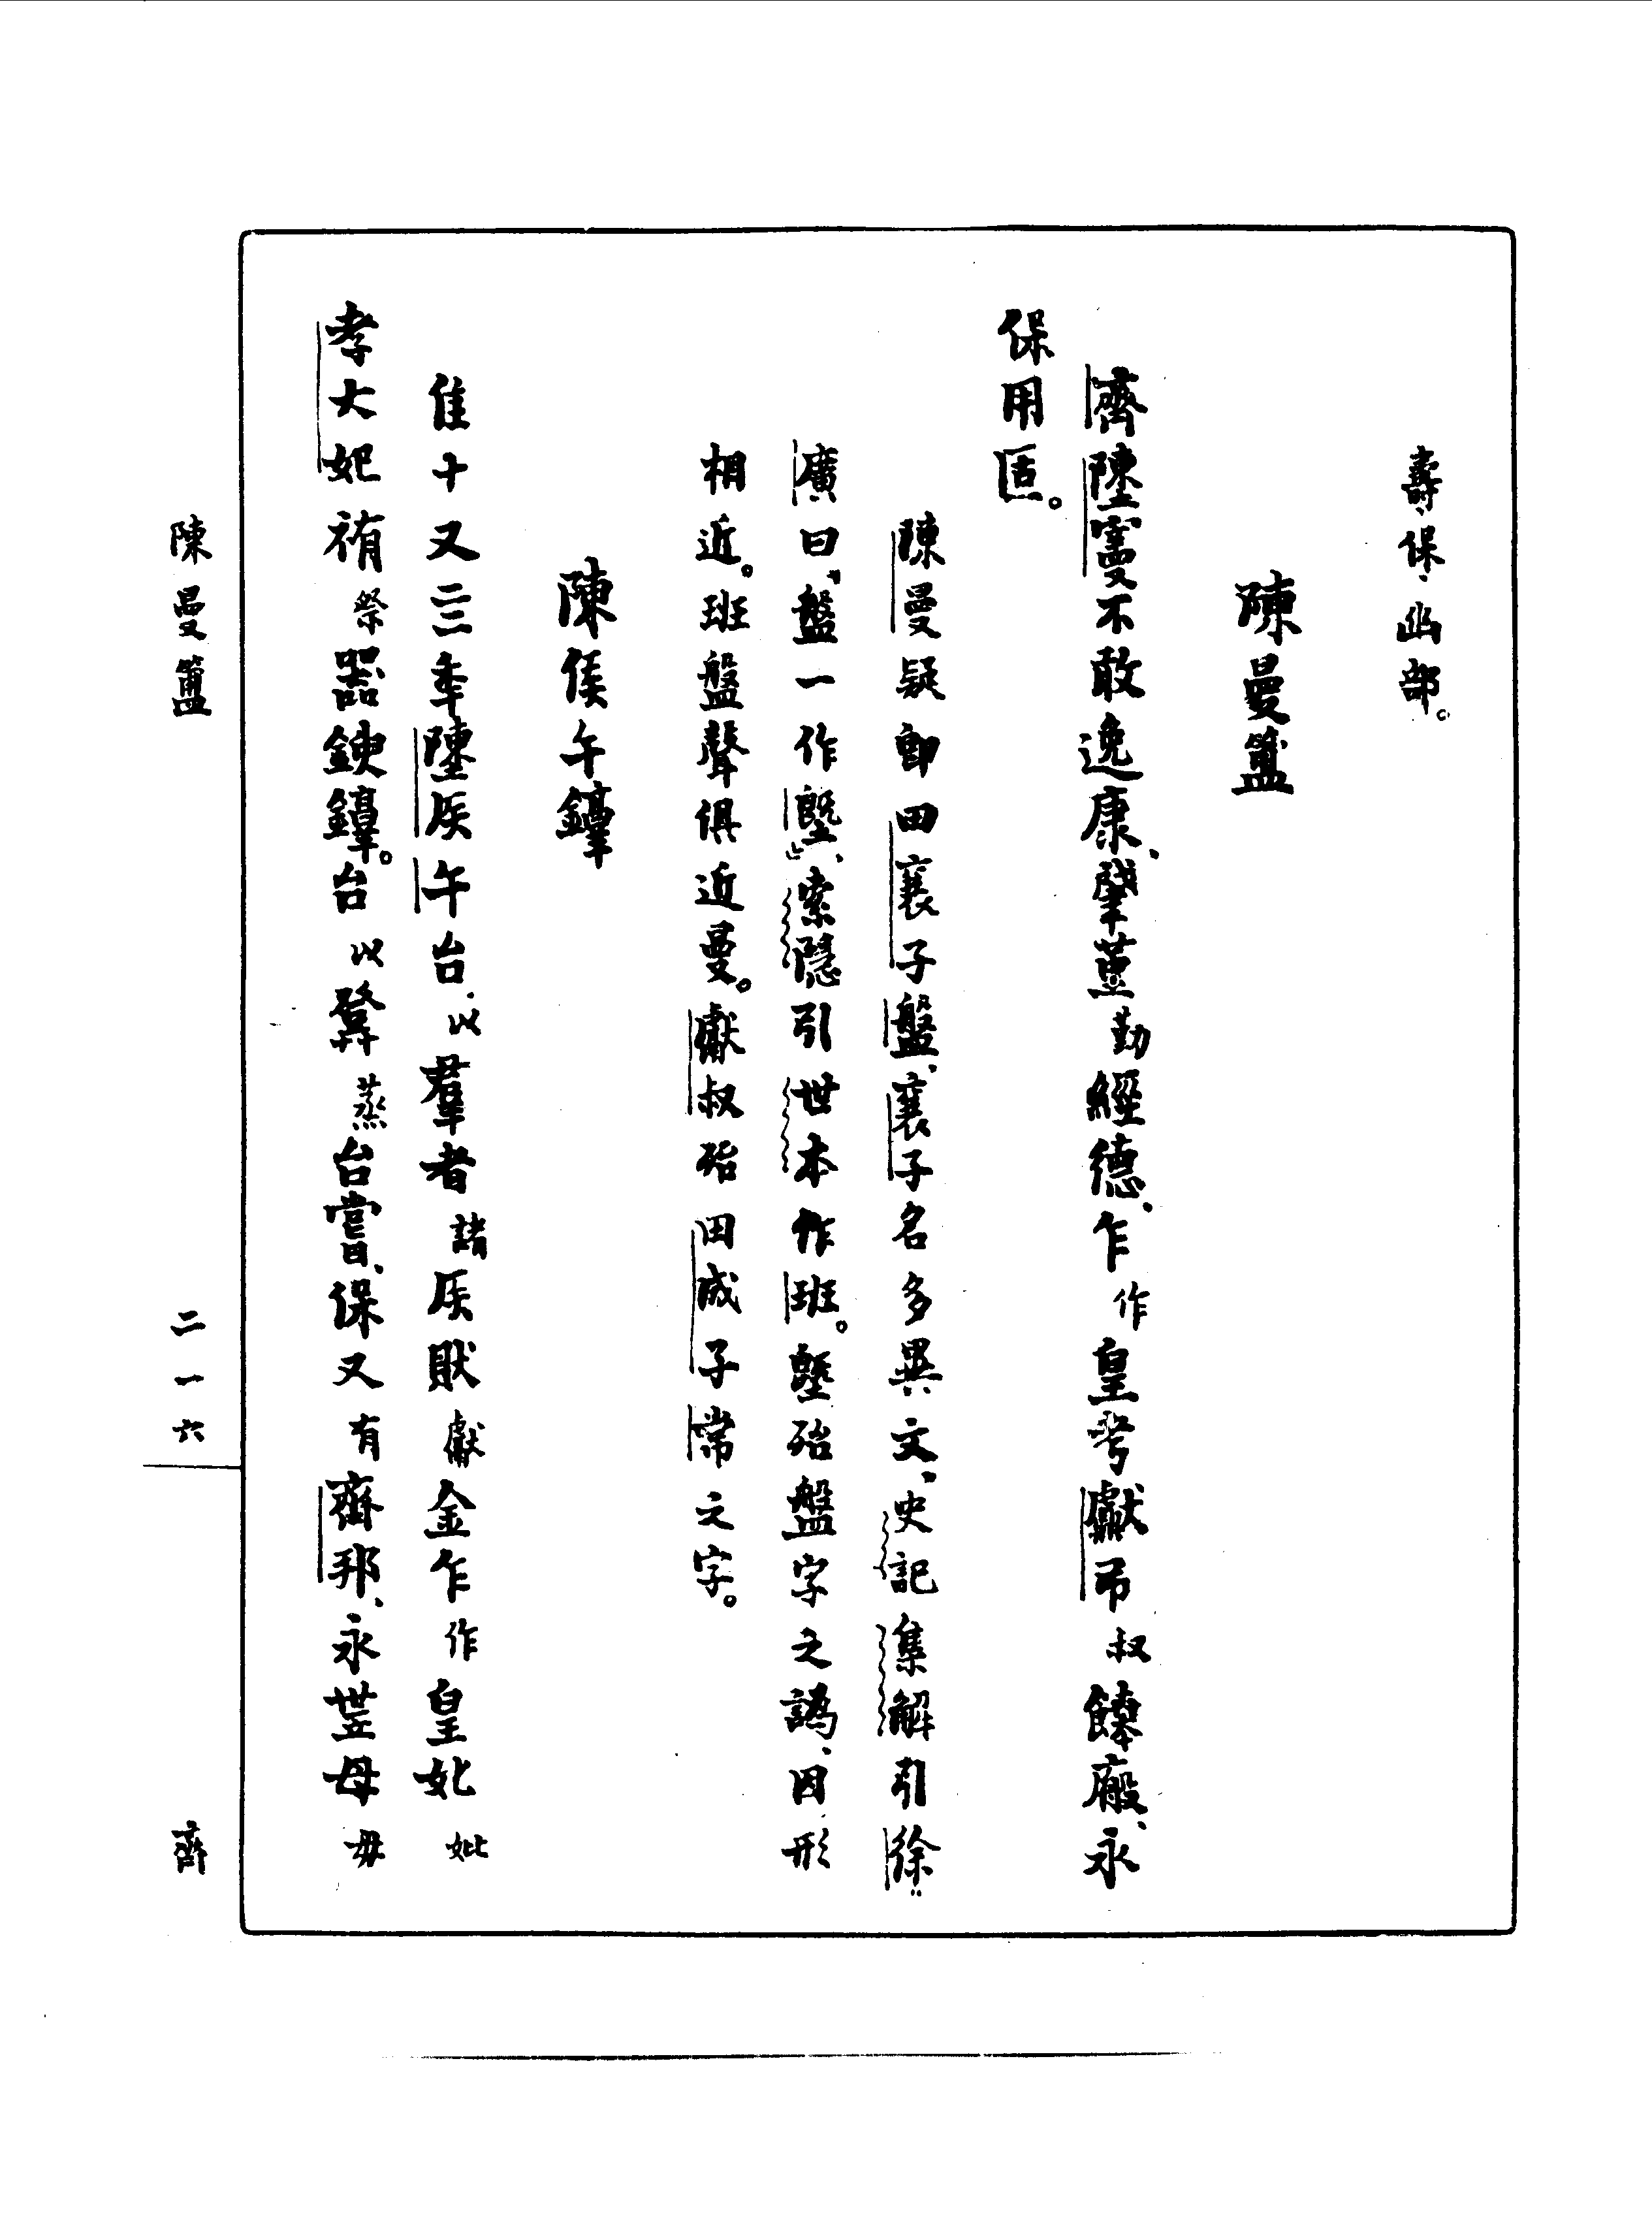 壽、保、幽部。
陳曼簠
齊陳曼不敢逸康、肇堇勤經德、乍作皇考獻弔叔饙廄、永
保用匿。
陳曼疑即田襄子盤、襄子名多異文、史記集解引徐
廣曰、盤一作塈、索隱引世本作班。塈殆盤字之譌、因形
相近。班盤聲俱近曼。獻叔殆田成子常之字。
陳侯午錞
隹十又亖年陳矦午台以羣者諸矦獻金乍作皇妣
孝大妃祭器鐓。台以蒸台嘗、保又有齊邦、永世母毋
陳曼簠
二一六
齊